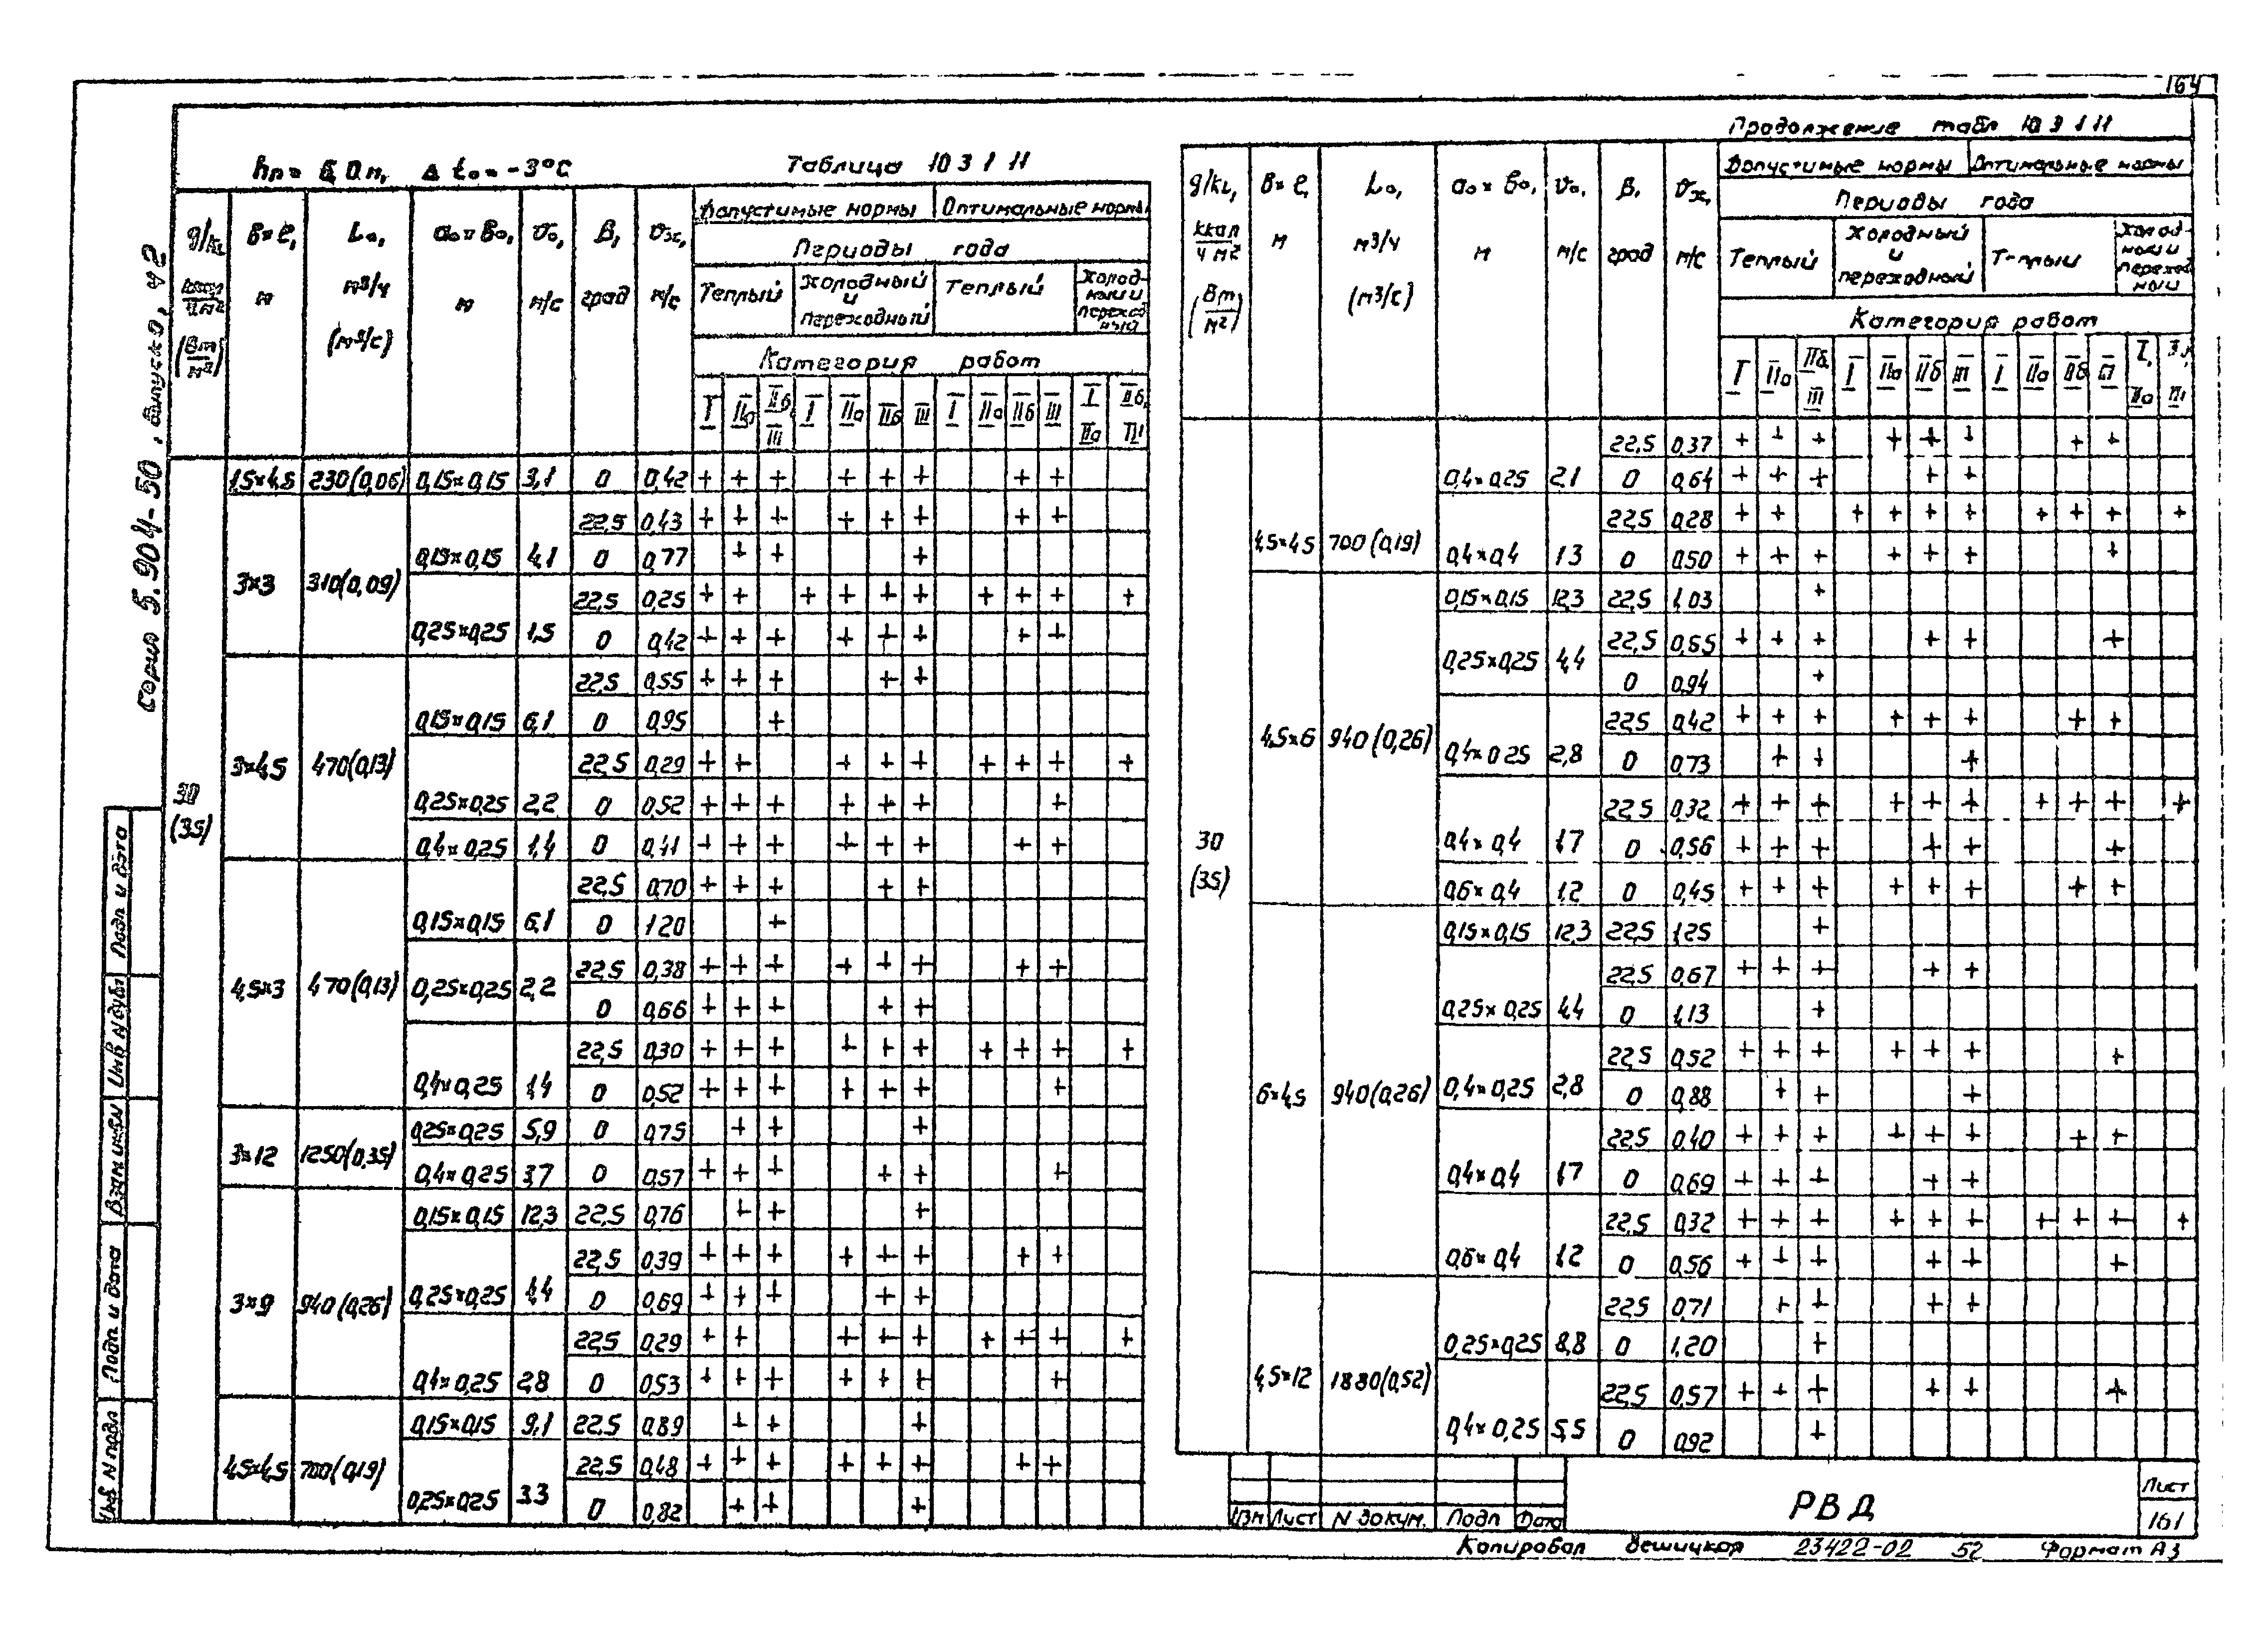 164
Серия 5.904-50, выпуск 0, ч 2
Таблица 10 3 1 11
Δ t₀ = -3°C
g/k₁, в×ℓ, L₀, a₀×в₀, v₀, β, vж,
Допустимые нормы Оптимальные нормы
Периоды года
м м³/ч м м/с град м/с
(Вт/м²) (м³/с)
Теплый Холодный и переходный Теплый Холодный и переходный
Категория работ
I IIа IIб, III I IIа IIб III I IIа IIб III I IIа IIб, III
30 (35)
1,5×4,5 230(0,06) 0,15×0,15 3,1 0 0,42 + + + + + + + +
3×3 310(0,09) 0,15×0,15 4,1 22,5 0,43 + + + + + + + +
0 0,77 + + +
0,25×0,25 1,5 22,5 0,25 + + + + + + + + + +
0 0,42 + + + + + + + +
3×4,5 470(0,13) 0,15×0,15 6,1 22,5 0,55 + + + + +
0 0,95 +
0,25×0,25 2,2 22,5 0,29 + + + + + + + + +
0 0,52 + + + + + + +
0,4×0,25 1,4 0 0,41 + + + + + + + +
4,5×3 470(0,13) 0,15×0,15 6,1 22,5 0,70 + + + + +
0 1,20 +
0,25×0,25 2,2 22,5 0,38 + + + + + + + +
0 0,66 + + + + +
0,4×0,25 1,4 22,5 0,30 + + + + + + + + + +
0 0,52 + + + + + + +
3×12 1250(0,35) 0,25×0,25 5,9 0 0,75 + + +
0,4×0,25 3,7 0 0,57 + + + + + +
3×9 940(0,26) 0,15×0,15 12,3 22,5 0,76 + + +
0,25×0,25 4,4 22,5 0,39 + + + + + + + +
0 0,69 + + + + +
0,4×0,25 2,8 22,5 0,29 + + + + + + + + +
0 0,53 + + + + + + +
4,5×4,5 700(0,19) 0,15×0,15 9,1 22,5 0,89 + + +
0,25×0,25 3,3 22,5 0,48 + + + + + + + +
0 0,82 + + +
Продолжение табл 10 3 1 11
g/k₁, в×ℓ, L₀, a₀×в₀, v₀, β, vж,
Допустимые нормы Оптимальные нормы
Периоды года
ккал/ч м² м м³/ч м м/с град м/с
(Вт/м²) (м³/с)
Теплый Холодный и переходный Теплый Холодный и переходный
Категория работ
I IIа IIб, III I IIа IIб III I IIа IIб III I, IIа III
30 (35)
4,5×4,5 700(0,19) 0,4×0,25 2,1 22,5 0,37 + + + + + + + +
0 0,64 + + + + +
0,4×0,4 1,3 22,5 0,28 + + + + + + + + + +
0 0,50 + + + + + + +
4,5×6 940(0,26) 0,15×0,15 12,3 22,5 1,03 +
0,25×0,25 4,4 22,5 0,55 + + + + + +
0 0,94 +
0,4×0,25 2,8 22,5 0,42 + + + + + + + +
0 0,73 + + +
0,4×0,4 1,7 22,5 0,32 + + + + + + + + + +
0 0,56 + + + + + +
0,6×0,4 1,2 0 0,45 + + + + + + + +
6×4,5 940(0,26) 0,15×0,15 12,3 22,5 1,25 +
0,25×0,25 4,4 22,5 0,67 + + + + +
0 1,13 +
0,4×0,25 2,8 22,5 0,52 + + + + + + +
0 0,88 + + +
0,4×0,4 1,7 22,5 0,40 + + + + + + + +
0 0,69 + + + + +
0,6×0,4 1,2 22,5 0,32 + + + + + + + + + +
0 0,56 + + + + + +
4,5×12 1880(0,52) 0,25×0,25 8,8 22,5 0,71 + + + +
0 1,20 +
0,4×0,25 5,5 22,5 0,57 + + + + + +
0 0,92 +
Инв N подл Подп и дата Взам инв N Инв N дубл Подп и дата
Изм Лист N докум. Подп Дата
РВД
Лист
161
Копировал Вешицкая 23422-02 52 Формат А3